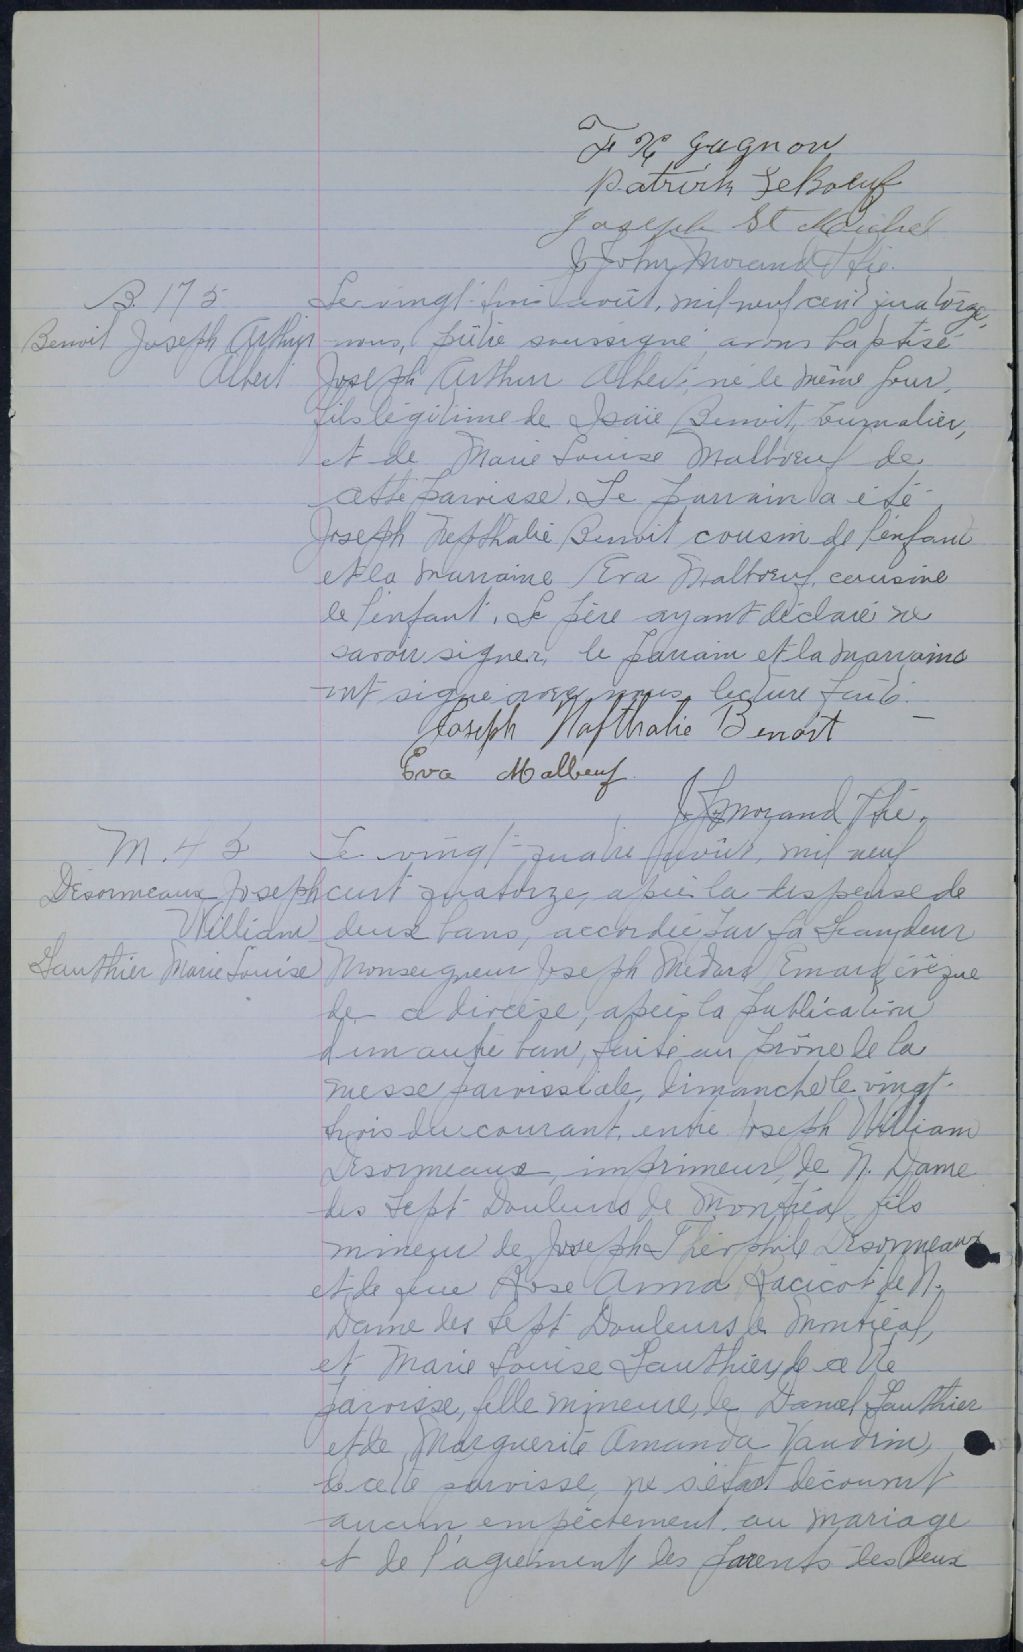 F X Gagnon
Patrick LeBoeuf
Joseph St Michel
J John Morand Ptre.
B. 175
Benoit Joseph Arthur
Albert
Le vingt août, mil neuf cent quatorze,
nous, prêtre soussigné avons baptisé
Joseph Arthur Albert, né le même jour,
fils légitime de Isaïe Benoit, journalier,
et de Marie Louise Malboeuf de
cette paroisse. Le parrain a été
Joseph Nephtalie Benoit cousin de l'enfant
et la marraine Eva Malboeuf, cousine
de l'enfant. Le père ayant déclaré ne
savoir signer, le parrain et la marraine
ont signé avec nous, lecture faite.
Joseph Nafthalie Benoit
Eva Malbeuf
J. J. Morand Ptre.
M. 45
Désormeaux Joseph
William
Gauthier Marie Louise
Le vingt-quatre août, mil neuf
cent quatorze, après la dispense de
deux bans, accordée par Sa Grandeur
Monseigneur Joseph Médard Emard, évêque
de ce diocèse, après la publication
d'un autre ban, faite au prône de la
messe paroissiale, dimanche le vingt-
trois du courant, entre Joseph William
Désormeaux, imprimeur, de N. Dame
des Sept Douleurs de Montréal, fils
mineur de Joseph Théophile Désormeaux
et de feue Rose Anna Racicot de N.
Dame des Sept Douleurs de Montréal,
et Marie Louise Gauthier, de cette
paroisse, fille mineure, de Daniel Gauthier
et de Marguerite Amanda Vaudrin,
de cette paroisse, ne s'étant découvert
aucun empêchement au mariage
et de l'agrément des parents des deux